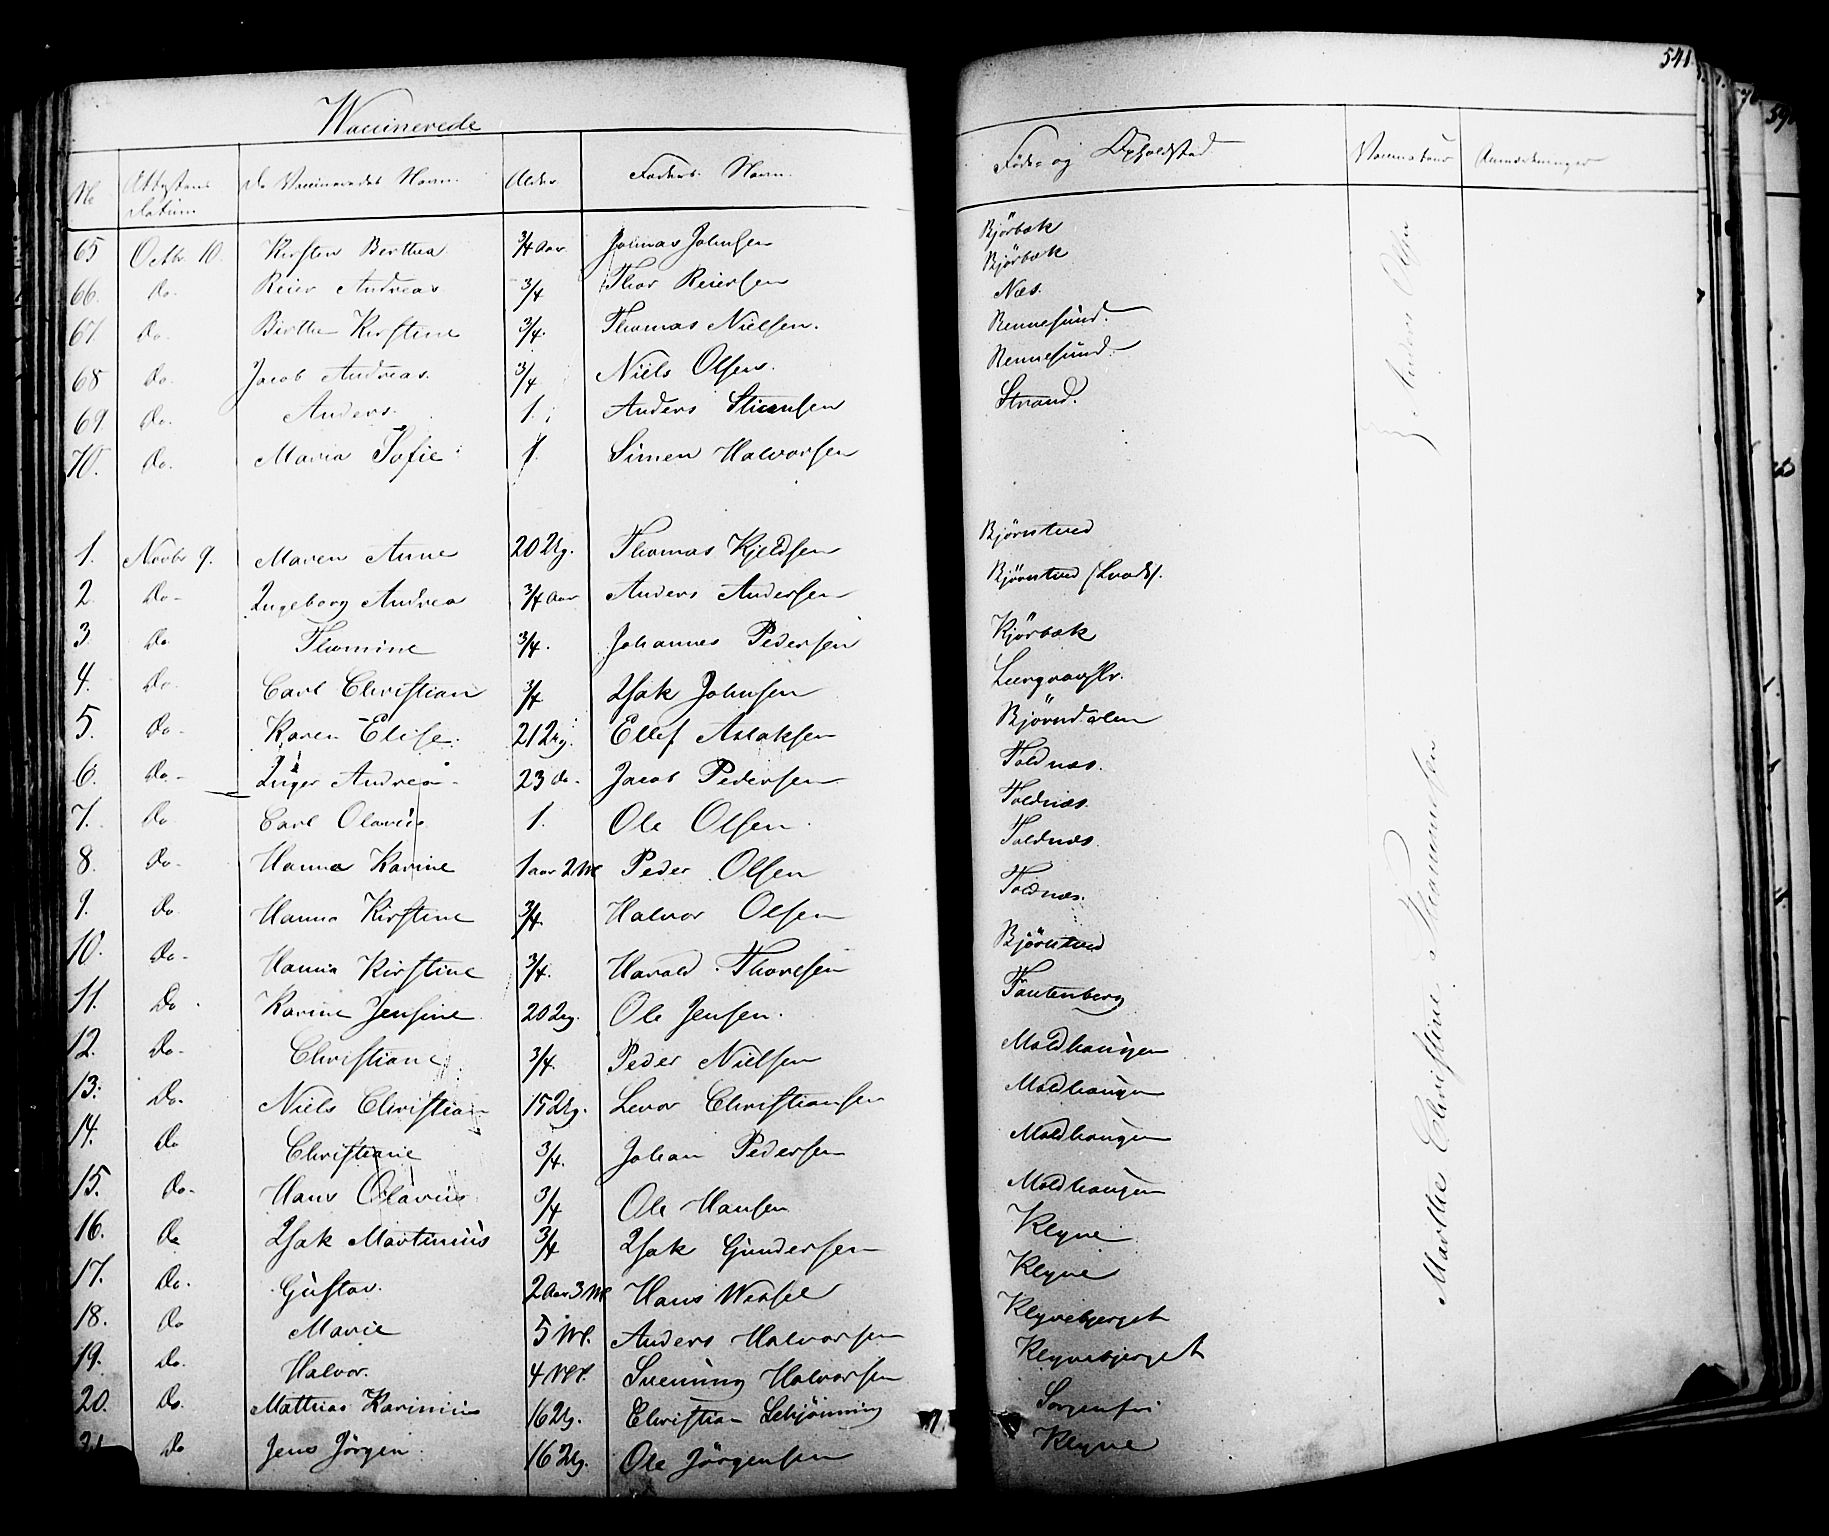 541
Waccinerede
No Attestens Datum De Vaccineredes Navn. Alder Faders Navn. Føde- og Opholdsted Vaccinateur Anmærkninger
65 Octbr 10. Kirsten Berthea 3/4 Aar Johnas Johnsen Bjørbæk
66. Do. Reier Andreas 3/4 Thor Reiersen Bjørbæk
67 Do. Birthe Kirstine 3/4. Thomas Nielsen. Næs.
68 Do. Jacob Andreas. 3/4 Niels Olsen. Rennesund.
69. Do. Anders. 1. Anders Stiansen Rennesund.
70. Do. Maria Sofie 1. Simen Halvorsen Strand.
Anders Olsen
1. Novbr 9. Maren Anne 20 Ug. Thomas Kjeldsen Bjørntved
2. Do- Ingeborg Andrea 3/4 Aar Anders Andersen Bjørntved
3. Do Thomine 3/4. Johannes Pedersen Kjørbæk
4. Do. Carl Christian 3/4 Isak Johnsen
5. Do- Karen Elise. 21 Ug. Ellef Aslaksen Bjørndalen
6. Do- Inger Andrea- 23 Do- Jacob Pedersen Voldnæs.
7. Do Carl Olavus 1. Ole Olsen. Voldnæs.
8. Do- Hanna Karine 1 aar 2 M Peder Olsen Voldnæs.
9. Do. Hanna Kirstine 3/4. Halvor Olsen Voldnæs.
10. Do- Hanna Kirstine 3/4. Harald Thoresen Bjørntved
11. Do. Karine Jensine 20 Ug. Ole Jensen. Tautenberg
12. Do- Christiane 3/4. Peder Nielsen Moldhaugen
13. Do. Niels Christian 15 Ug. Levor Christiansen Moldhaugen
14. Do Christiane 3/4. Johan Pedersen Moldhaugen
15. Do- Hans Olavus 3/4 Ole Hansen Moldhaugen
16. Do Isak Martinius 3/4 Isak Gundersen Klyve
17. Do. Gustav. 2 Aar 3 M Hans Wessel Klyve
18. Do Marie 5 M. Anders Halvorsen Klyvebjerget
19. Do. Halvor. 4 M. Svenning Halvorsen Klyvebjerget
20. Do. Mathias Karinius 16 Ug. Christian Schjønning Sorgenfri
21 Do Jens Jörgen 16 Ug. Ole Jörgensen Klyve
Marthe Christine Thommesen